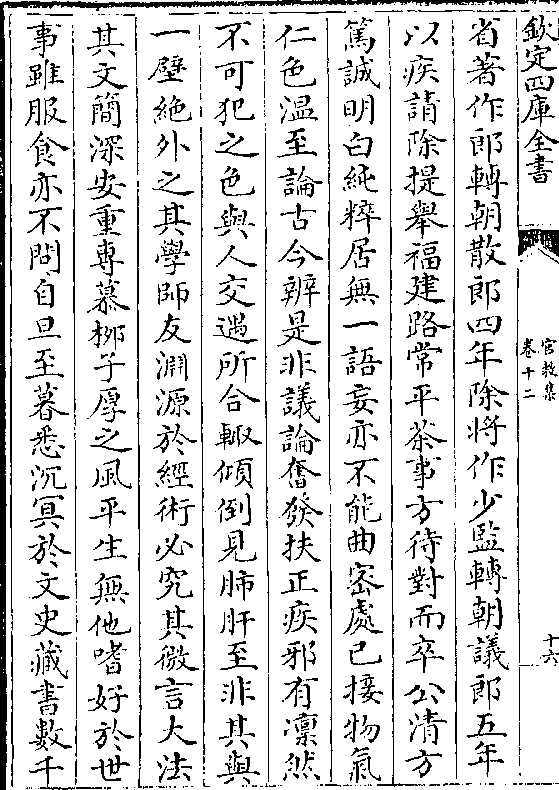 欽定四庫全書
宮教集
卷十二
十六
省著作郎轉朝散郎四年除將作少監轉朝議郎五年
以疾請除提舉福建路常平茶事方待對而卒公清方
篤誠明白純粹居無一語妄亦不能曲密處已接物氣
仁色溫至論古今辨是非議論奮發扶正疾邪有凛然
不可犯之色與人交遇所合輙傾倒見肺肝至非其與
一壁絶外之其學師友淵源於經術必究其微言大法
其文簡深安重專慕栁子厚之風平生無他嗜好於世
事雖服食亦不問自旦至暮悉沉冥於文史藏書數千